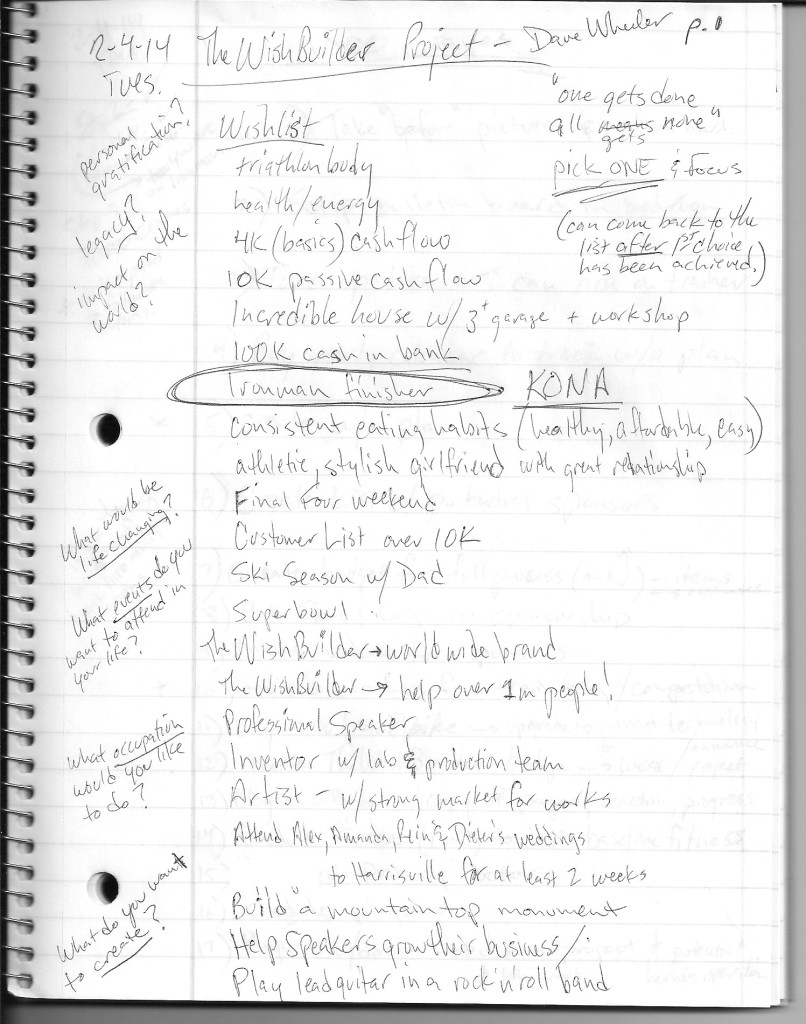 2-4-14 The WishBuilder Project - Dave Wheeler p.1
Tues.
"one gets done
all gets none"
pick ONE & focus
(can come back to the
list after 1st choice
has been achieved.)
personal
gratification?
legacy?
impact on the
world?
Wishlist
triathlon body
health/energy
4K (basics) cashflow
10K passive cashflow
Incredible house w/ 3+ garage + workshop
100K cash in bank
Ironman finisher KONA
consistent eating habits (healthy, affordable, easy)
athletic, stylish girlfriend with great relationship
Final Four weekend
Customer List over 10K
Ski Season w/ Dad
Superbowl
The WishBuilder → world wide brand
The WishBuilder → help over 1m people!
Professional Speaker
Inventor w/ lab & production team
Artist - w/ strong market for works
Attend Alex, Amanda, Rein & Dieter's weddings
to Harrisville for at least 2 weeks
Build "a mountain top monument
Help Speakers grow their business/
Play lead guitar in a rock'n'roll band
What would be
life changing?
What events do you
want to attend in
your life?
What occupation
would you like
to do?
What do you want
to create?